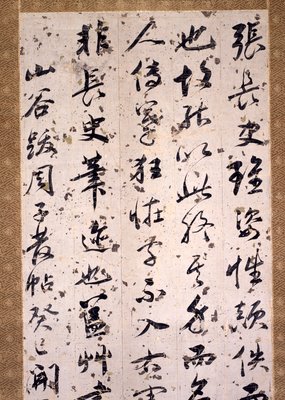 張長史雖姿性顛佚而
也故能以此終其身而名
人傳摹狂怪字不入右軍
非長史筆迹也蓋艸書
山谷跋周子發帖癸巳開